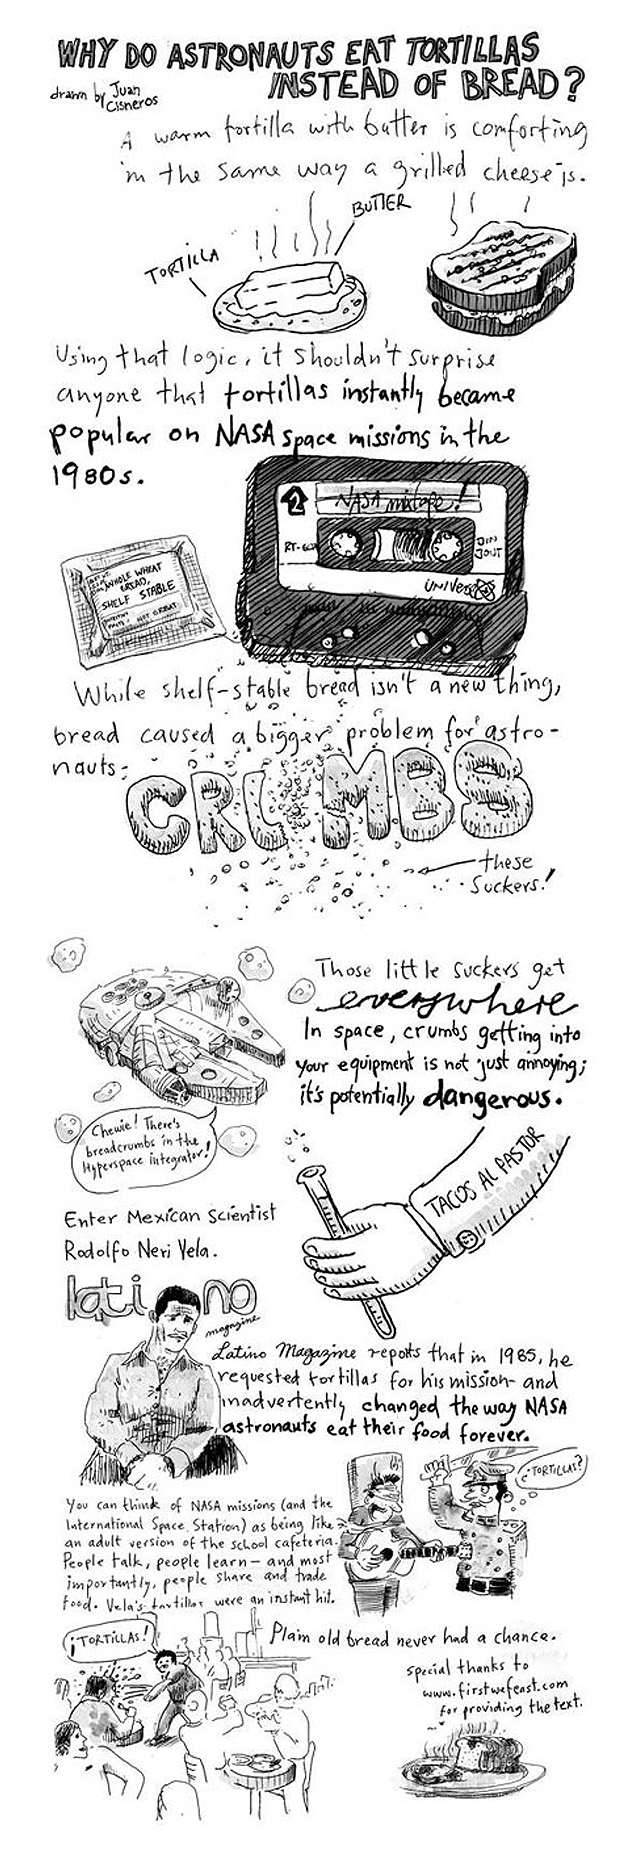 WHY DO ASTRONAUTS EAT TORTILLAS
INSTEAD OF BREAD?
drawn by Juan
Cisneros
A warm tortilla with butter is comforting
in the same way a grilled cheese is.
BUTTER
TORTILLA
Using that logic, it shouldn't surprise
anyone that tortillas instantly became
popular on NASA space missions in the
1980s.
2
NASA mixtape!
RT-60
UNIVERS
WHOLE WHEAT
BREAD,
SHELF STABLE
NOT GREAT
While shelf-stable bread isn't a new thing,
bread caused a bigger problem for astro-
nauts:
CRUMBS
these
suckers!
Those little suckers get
everywhere
In space, crumbs getting into
your equipment is not just annoying;
it's potentially dangerous.
Chewie! There's
breadcrumbs in the
Hyperspace integrator!
TACOS AL PASTOR
Enter Mexican Scientist
Rodolfo Neri Vela.
latino
magazine
Latino Magazine reports that in 1985, he
requested tortillas for his mission- and
inadvertently changed the way NASA
astronauts eat their food forever.
¿TORTILLAS?
You can think of NASA missions (and the
International Space Station) as being like
an adult version of the school cafeteria.
People talk, people learn - and most
importantly, people share and trade
food. Vela's tortillas were an instant hit.
¡TORTILLAS!
Plain old bread never had a chance.
special thanks to
www.firstwefeast.com
for providing the text.